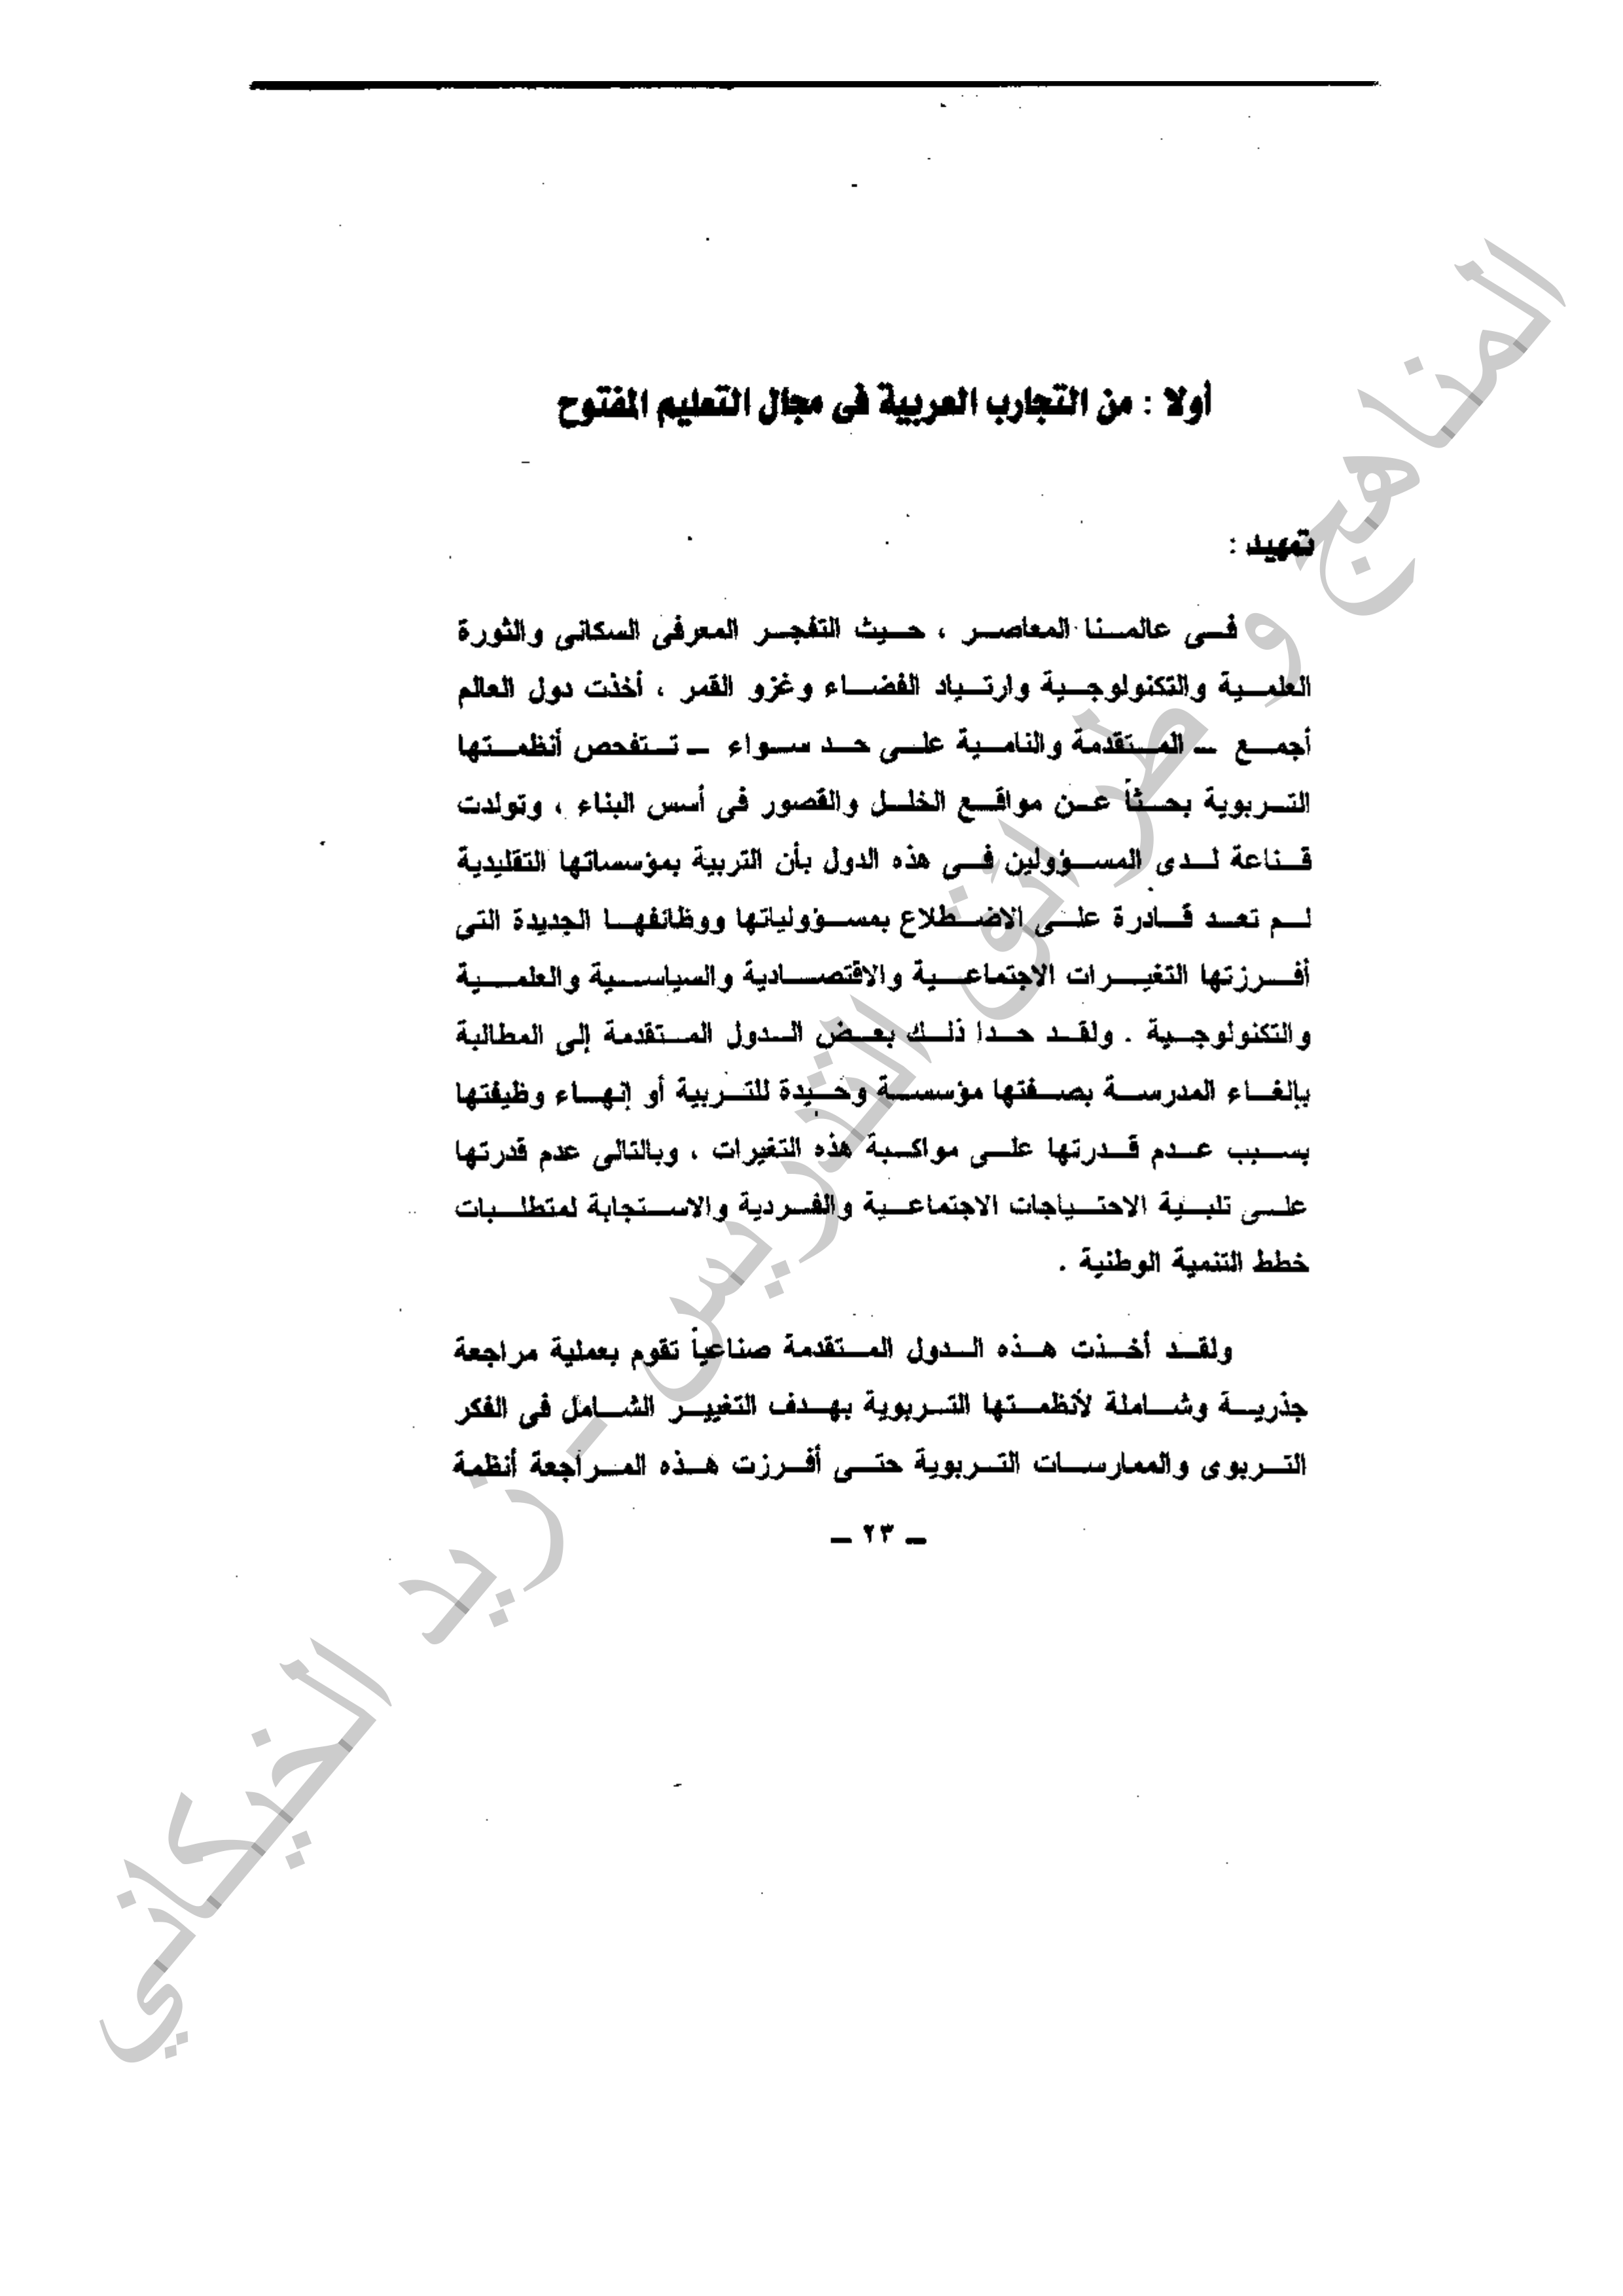 أولا : من التجارب العربية فى مجال التعليم المفتوح
تمهيد :
فى عالمنا المعاصر ، حيث التفجر المعرفى السكانى والثورة
العلمية والتكنولوجية وارتياد الفضاء وغزو القمر ، أخذت دول العالم
أجمع – المتقدمة والنامية على حد سواء – تتفحص أنظمتها
التربوية بحثاً عن مواقع الخلل والقصور فى أسس البناء ، وتولدت
قناعة لدى المسؤولين فى هذه الدول بأن التربية بمؤسساتها التقليدية
لم تعد قادرة على الاضطلاع بمسؤولياتها ووظائفها الجديدة التى
أفرزتها التغيرات الاجتماعية والاقتصادية والسياسية والعلمية
والتكنولوجية . ولقد حدا ذلك بعض الدول المتقدمة إلى المطالبة
بإلغاء المدرسة بصفتها مؤسسة وحيدة للتربية أو إنهاء وظيفتها
بسبب عدم قدرتها على مواكبة هذه التغيرات ، وبالتالى عدم قدرتها
على تلبية الاحتياجات الاجتماعية والفردية والاستجابة لمتطلبات
خطط التنمية الوطنية .
ولقد أخذت هذه الدول المتقدمة صناعياً تقوم بعملية مراجعة
جذرية وشاملة لأنظمتها التربوية بهدف التغيير الشامل فى الفكر
التربوى والممارسات التربوية حتى أفرزت هذه المراجعة أنظمة
– ٢٣ –
المناهج و طرائق التدريس - زيد الخيكاني